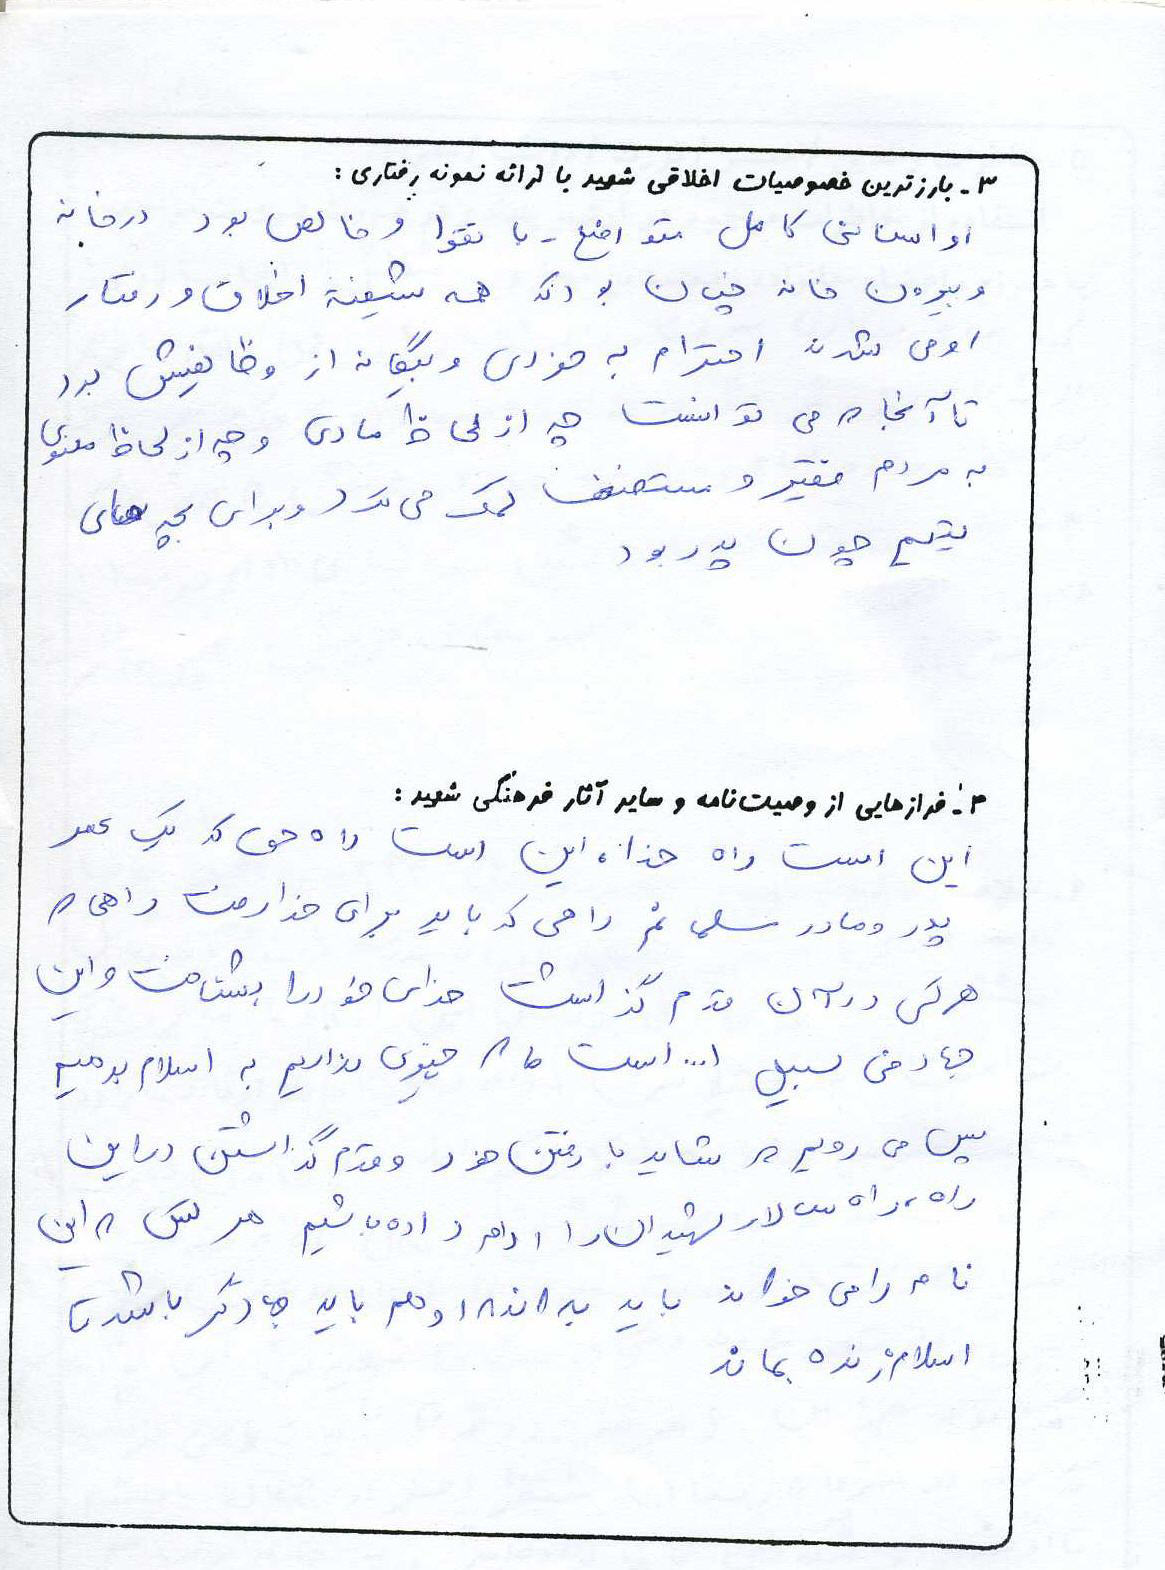 ۳- بارزترین خصوصیات اخلاقی شهید با ارائه نمونه رفتاری:
او انسانی کامل متواضع - با تقوا و خالص بود در خانه
و بیرون خانه چنان بود که همه شیفته اخلاق و رفتار
او می شدند احترام به خودی و بیگانه از وظایفش بود
تا آنجا که می توانست چه از لحاظ مادی و چه از لحاظ معنوی
به مردم فقیر و مستضعف کمک می کرد و برای بچه های
یتیم چون پدر بود
۴- فرازهایی از وصیت‌نامه و سایر آثار فرهنگی شهید:
این است راه خدا، این است راه حق که یک عمر
پدر و مادر راهی که باید برای خدا رفت راهی که
هر کس در آن قدم گذاشت خدای خود را بشناخت و این
جهاد فی سبیل ا... است ما که چیزی نداریم به اسلام بدهیم
پس می رویم که شاید با رفتن خود و قدم گذاشتن در این
راه، راه سالار شهیدان را ادامه داده باشیم هر کس که این
نامه را می خواند باید بداند که او هم باید جهادگر باشد تا
اسلام زنده بماند